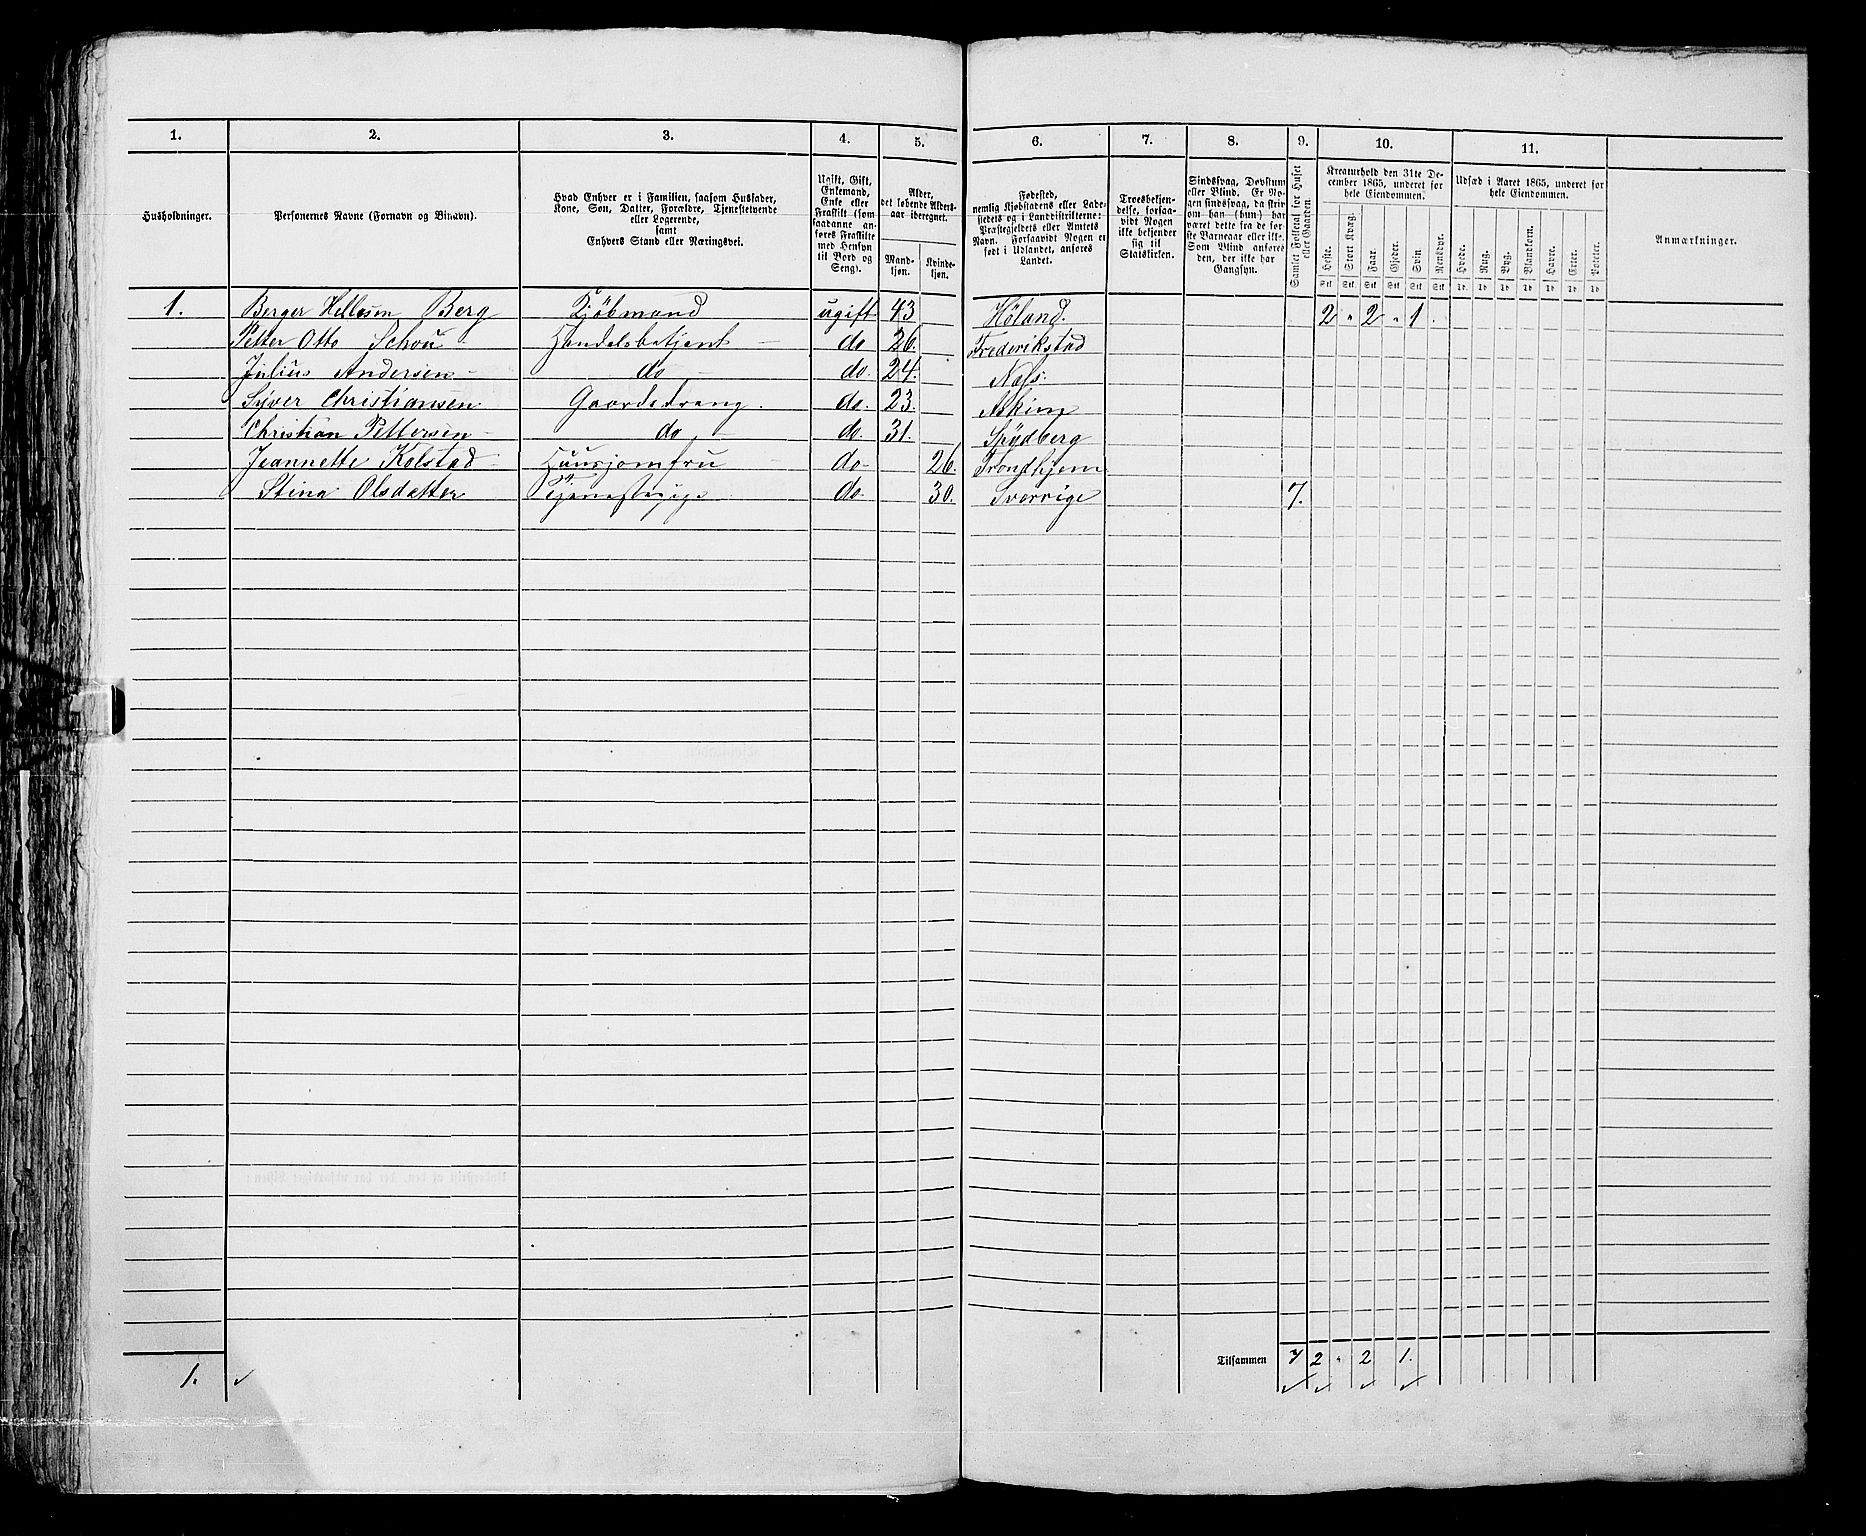 1. 2. 3. 4. 5. 6. 7. 8. 9. 10. 11.
Husholdninger.
Personernes Navne (Fornavn og Binavn).
Hvad Enhver er i Familien, saasom Husfader,
Kone, Søn, Datter, Forældre, Tjenestetyende
eller Logerende,
samt
Enhvers Stand eller Næringsvei.
Ugift, Gift,
Enkemand,
Enke eller
Fraskilt (som
saadanne an-
føres Fraskilte
med Hensyn
til Bord og
Seng).
Alder,
det løbende Alders-
aar iberegnet.
Mand-
kjøn.
Kvinde-
kjøn.
Fødested,
nemlig Kjøbstadens eller Lade-
stedets og i Landdistrikterne:
Præstegjeldets eller Amtets
Navn. Forsaavidt Nogen er
født i Udlandet, anføres
Landet.
Troesbekjen-
delse, forsaa-
vidt Nogen
ikke bekjender
sig til
Statskirken.
Sindssvag, Døvstum
eller Blind. Er No-
gen sindssvag, da skriv
om han (hun) har
været dette fra de før-
ste Barneaar eller ikke.
Som Blind anføres
den, der ikke har
Gangsyn.
Samlet Folketal for Huset
eller Gaarden.
Kreaturhold den 31te De-
cember 1865, underet for
hele Eiendommen.
Heste. Stort Kvæg. Faar Gjeder. Svin Rensdyr.
Stk Stk Stk Stk Stk Stk
Udsæd i Aaret 1865, underet for
hele Eiendommen.
Hvede. Rug. Byg. Blandkorn. Havre. Erter. Poteter.
Td Td Td Td Td Td Td
Anmærkninger.
1. Berger Hellesen Berg Kjøbmand ugift 43 Høland. 2 " 2 " 1 .
Petter Otto Schou - Handelsbetjent - do 26. Frederikstad
Julius Andersen - do - do. 24. Næs.
Syver Christiansen Gaardsdreng. do. 23. Askim
Christian Pettersen - do - do. 31. Spydberg
Jeannette Kolstad - Huusjomfru - do - 26. Trondhjem
Stina Olsdatter Tjenestepige do. 30. Sverrige 7.
Tilsammen 7 2 " 2 1.
1. ✓ ✓ ✓ ✓ ✓